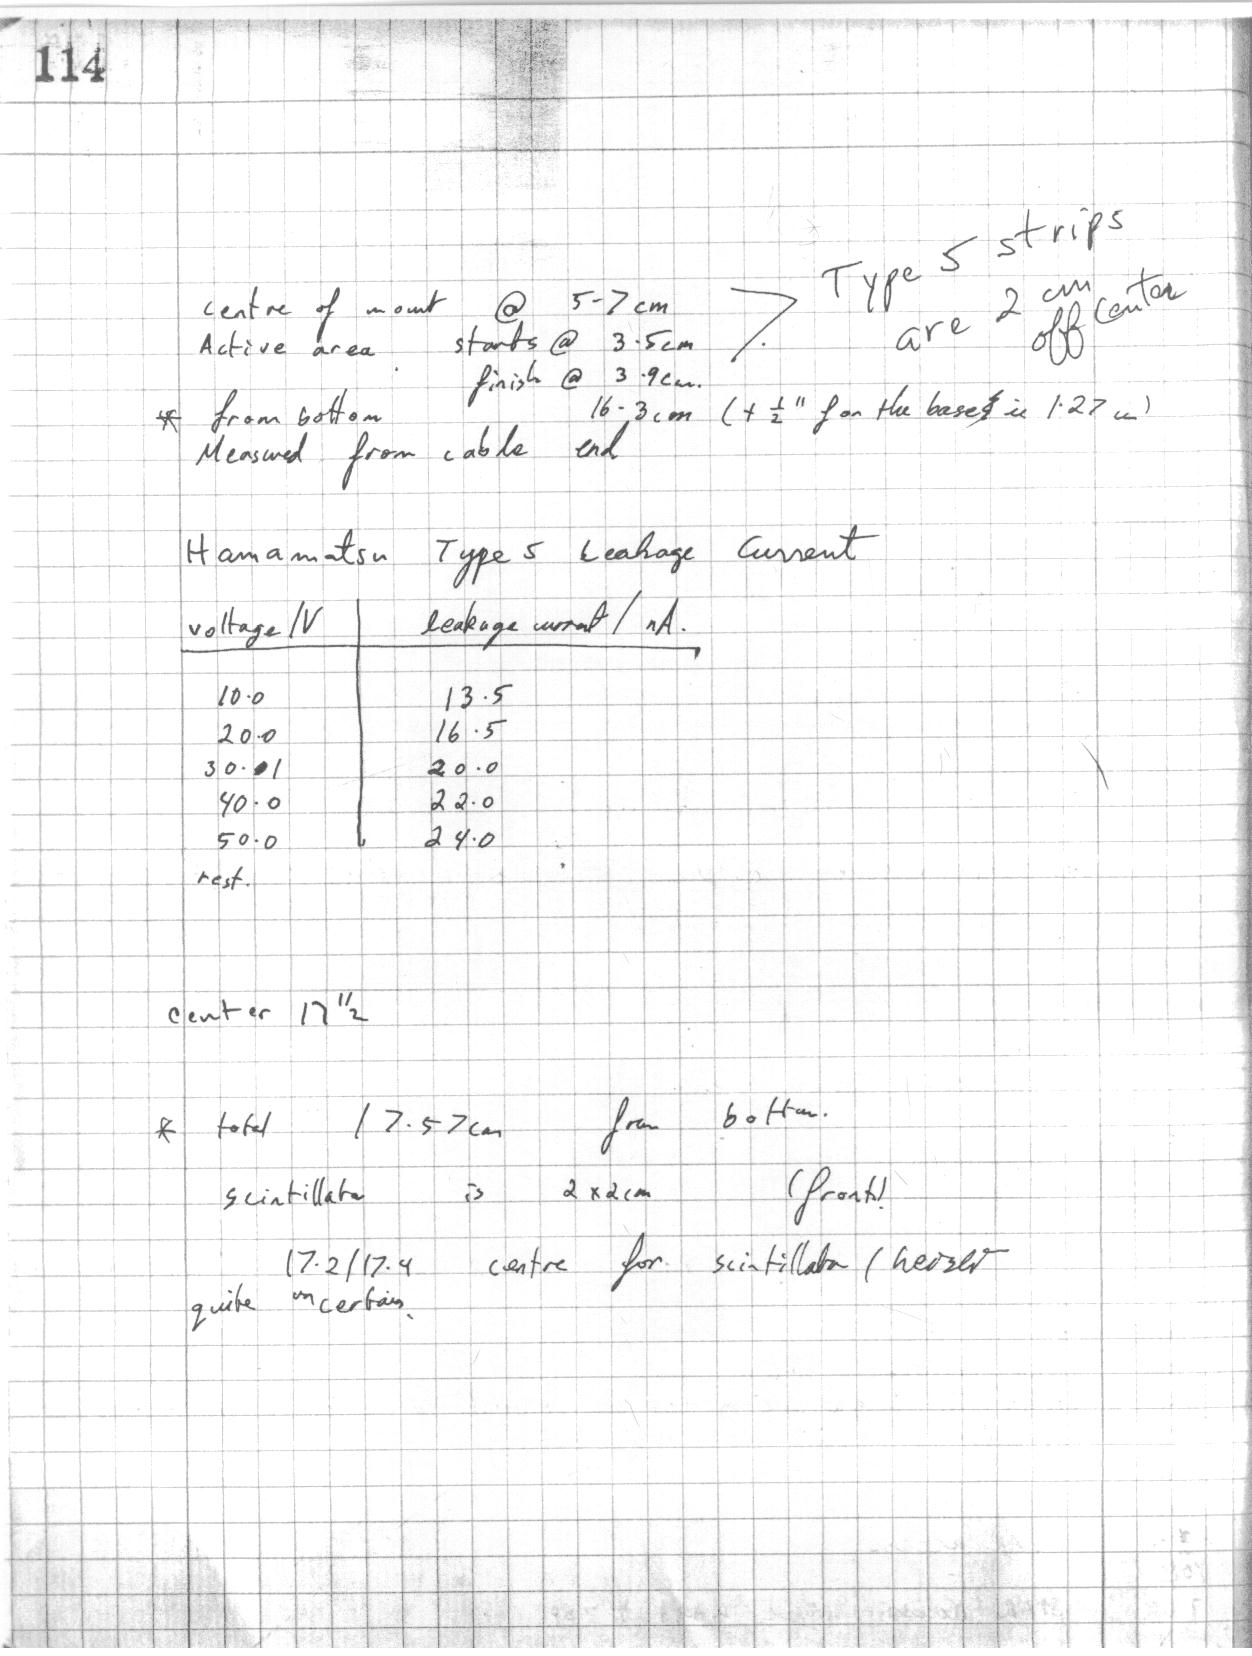 114
Type 5 strips
are 2 cm
off center
centre of mount @ 5.7cm
Active area starts @ 3.5cm
finish @ 3.9cm.
* from bottom 16.3cm (+ 1/2" for the bases ie 1.27cm)
Measured from cable end
Hamamatsu Type 5 Leakage Current
voltage/V leakage current / nA.
10.0 13.5
20.0 16.5
30.01 20.0
40.0 22.0
50.0 24.0
rest.
center 17"1/2
* total 17.57cm from bottom.
scintillator is 2x2cm (front)
17.2/17.4 centre for scintillator (
quite uncertain.